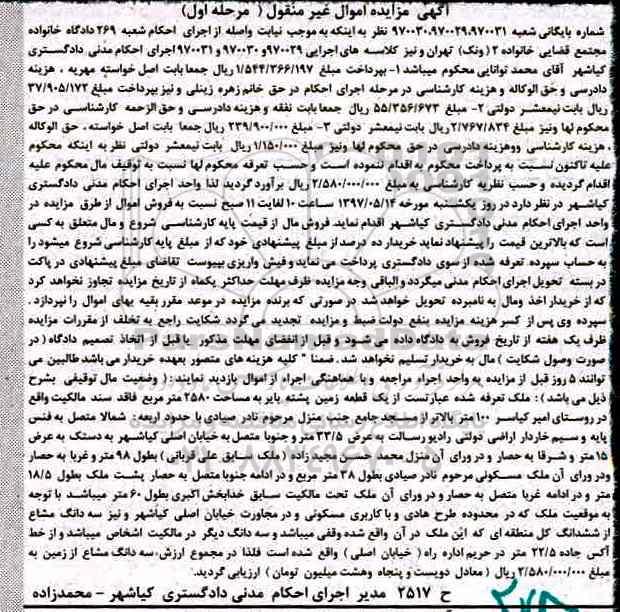 آگهی مزایده اموال غیر منقول ( مرحله اول)
شماره بایگانی شعبه ۹۷۰۰۳۰،۹۷۰۰۲۹،۹۷۰۰۳۱ نظر به اینکه به موجب نیابت واصله از اجرای احکام شعبه ۲۶۹ دادگاه خانواده
مجتمع قضایی خانواده ۲ (ونک) تهران و نیز کلاسه های اجرایی ۹۷۰۰۲۹ و ۹۷۰۰۳۰ و ۹۷۰۰۳۱ اجرای احکام مدنی دادگستری
کیاشهر آقای محمد توانایی محکوم میباشد ۱- بپرداخت مبلغ ۱/۵۴۴/۳۶۶/۱۹۷ ریال جمعا بابت اصل خواسته مهریه ، هزینه
دادرسی و حق الوکاله و هزینه کارشناسی در مرحله اجرای احکام در حق خانم زهره زینلی و نیز بپرداخت مبلغ ۳۷/۹۰۵/۱۷۲
ریال بابت نیمعشر دولتی ۲- مبلغ ۵۵/۳۵۶/۶۷۳ ریال جمعا بابت نفقه و هزینه دادرسی و حق الزحمه کارشناسی در حق
محکوم لها ونیز مبلغ ۲/۷۶۷/۸۳۴ ریال بابت نیمعشر دولتی ۳- مبلغ ۲۳۹/۹۰۰/۰۰۰ ریال جمعا بابت اصل خواسته ، حق الوکاله
، هزینه کارشناسی و وهزینه دادرسی در حق محکوم لها ونیز مبلغ ۱/۱۵۰/۰۰۰ ریال بابت نیمعشر دولتی نظر به اینکه محکوم
علیه تاکنون نسبت به پرداخت محکوم به اقدام ننموده است و حسب تعرفه محکوم لها نسبت به توقیف مال محکوم علیه
اقدام گردیده و حسب نظریه کارشناسی به مبلغ ۲/۵۸۰/۰۰۰/۰۰۰ ریال برآورد گردید لذا واحد اجرای احکام مدنی دادگستری
کیاشهر در نظر دارد در روز یکشنبه مورخه ۱۳۹۷/۰۵/۱۴ ساعت ۱۰ لغایت ۱۱ صبح نسبت به فروش اموال از طرق مزایده در
واحد اجرای احکام مدنی دادگستری کیاشهر اقدام نماید فروش مال از قیمت پایه کارشناسی شروع و مال متعلق به کسی
است که بالاترین قیمت را پیشنهاد نماید خریدار ده درصد از مبلغ پیشنهادی خود که از مبلغ پایه کارشناسی شروع میشود را
به حساب سپرده تعرفه شده از سوی دادگستری پرداخت می نماید و فیش واریزی بپیوست تقاضای مبلغ پیشنهادی در پاکت
در بسته تحویل اجرای احکام مدنی میگردد و الباقی وجه مزایده ظرف مهلت حداکثر یکماه از تاریخ مزایده تجاوز نخواهد کرد
که از خریدار اخذ ومال به نامبرده تحویل خواهد شد در صورتی که برنده مزایده در موعد مقرر بقیه بهای اموال را نپردازد .
سپرده وی پس از کسر هزینه مزایده بنفع دولت ضبط و مزایده تجدید می گردد شکایت راجع به تخلف از مقررات مزایده
ظرف یک هفته از تاریخ فروش به دادگاه داده می شود و قبل از انقضای مهلت مذکور یا قبل از اتخاذ تصمیم دادگاه ( در
صورت وصول شکایت ) مال به خریدار تسلیم نخواهد شد . ضمنا " کلیه هزینه های متصور بعهده خریدار می باشد طالبین می
توانند ۵ روز قبل از مزایده به واحد اجراء مراجعه و با هماهنگی اجراء از اموال بازدید نمایند : ( وضعیت مال توقیفی بشرح
ذیل می باشد ) : ملک تعرفه شده عبارتست از یک قطعه زمین پشته بایر به مساحت ۲۵۸۰ متر مربع فاقد سند مالکیت واقع
در روستای امیر کیاسر ۱۰۰ متر بالاتر از مسجد جامع جنب منزل مرحوم نادر صیادی با حدود اربعه : شمالا متصل به فنس
پایه و سیم خاردار اراضی دولتی رادیو رسالت به عرض ۳۳/۵ متر و جنوبا متصل به خیابان اصلی کیاشهر به دستک به عرض
۱۵ متر و شرقا به حصار و در ورای آن منزل محمد حسن مجید زاده ( ملک سابق علی قربانی ) بطول ۹۸ متر و غربا به حصار
ودر ورای آن ملک مسکونی مرحوم نادر صیادی بطول ۳۸ متر مربع و در ادامه جنوبا متصل به حصار پشت ملک بطول ۱۸/۵
متر و در ادامه غربا متصل به حصار و در ورای آن ملک تحت مالکیت سابق خدابخش اکبری بطول ۶۰ متر میباشد با توجه
به موقعیت ملک که در محدوده طرح هادی و با کاربری مسکونی و در مجاورت خیابان اصلی کیاشهر و نیز سه دانگ مشاع
از ششدانگ کل منطقه ای که این ملک در آن واقع شده وقفی میباشد و سه دانگ دیگر در مالکیت اشخاص میباشد و از خط
آکس جاده ۲۲/۵ متر در حریم اداره راه ( خیابان اصلی ) واقع شده است فلذا در مجموع ارزش سه دانگ مشاع از زمین به
مبلغ ۲/۵۸۰/۰۰۰/۰۰۰ ریال ( معادل دویست و پنجاه وهشت میلیون تومان ) ارزیابی گردید.
ح ۲۵۱۷ مدیر اجرای احکام مدنی دادگستری کیاشهر – محمدزاده